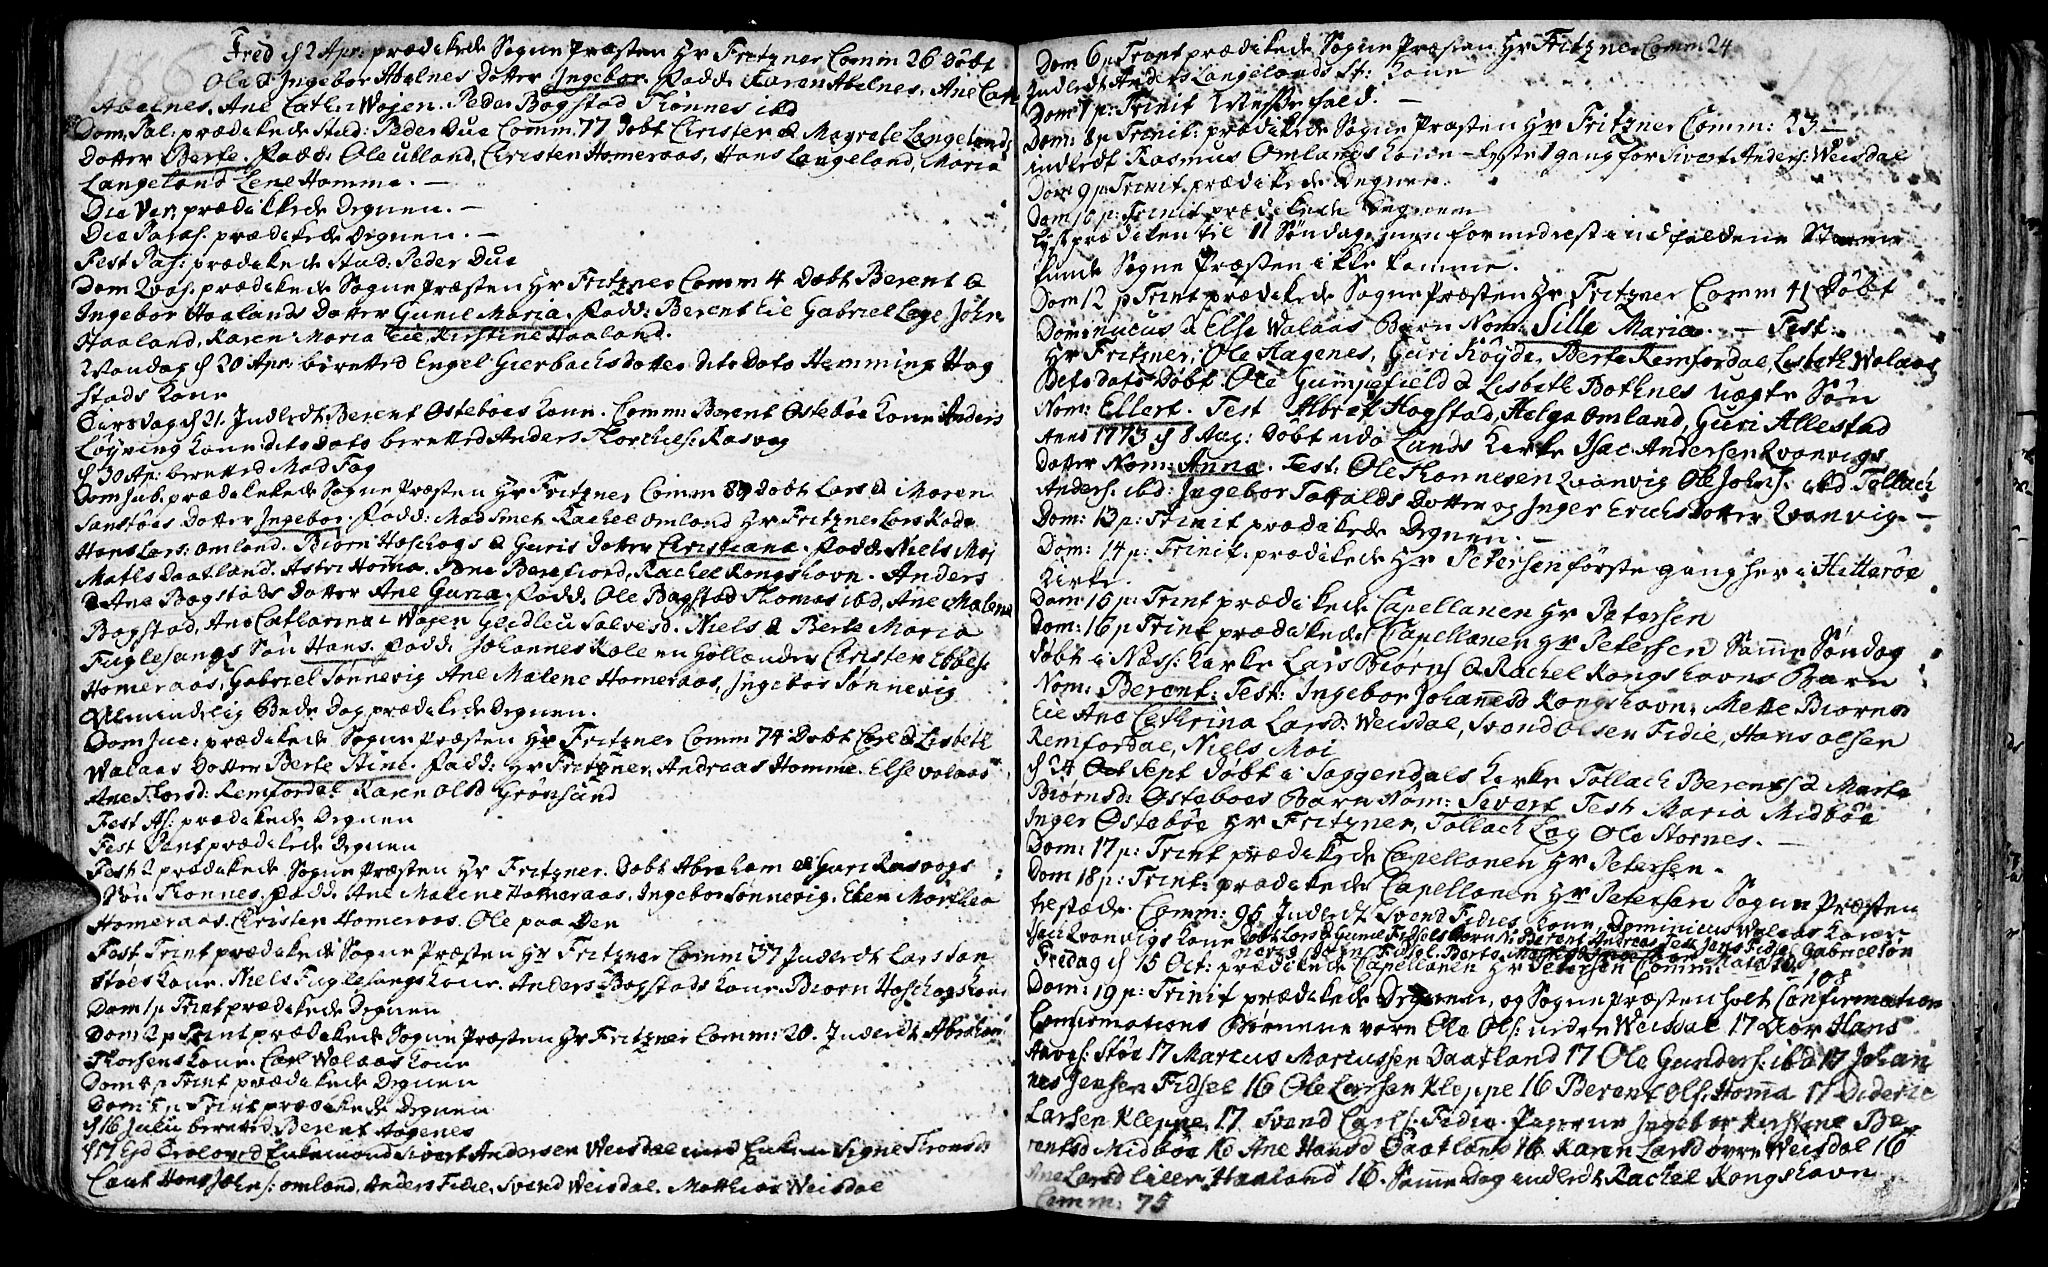 Fred d 2 Apr: prædikede Sogne Præsten Hr Fritzner Comm 26 døbt
Ole & Ingebor Abelnes Datter Ingebor. Fadd: Karen Abelnes, Ane Cath
Abelnes, Ane Cathr: Wøjen. Peder Bogstad Thønnes ibd
Dom: Pal: prædikede Stud: Peder Due Comm: 77 døbt Christen & Magrete Langelands
Datter Berte. Fadd: Ole Utland, Christen Homeraas, Hans Langeland, Maria
Langeland Lene Homme. —
Die Ven: prædikede Degnen. —
Die Paras. prædikede Degnen. —
Fest Pas: prædikede Stud: Peder Due
Dom Qvas. prædikede Sogne Præsten Hr Fritzner Comm 4 døbt Berent &
Ingebor Haalands Datter Gunil Maria. Fadd: Berent Eie Gabriel Lege John
Haaland, Karen Maria Eie, Kirstine Haaland.
Mandag d 20 Apr: beretted Engel Gierbachs datter dito dato Hemming Hog
stads Kone
Tirsdag d 21. Indledt Berent Østebøes Kone. Comm: Berent Østebøe Kone Anders
Løyning Kone dito dato beretted Anders Thorchels: Rasvog
d 30 Ap: beretted Mad Fog
Dom Jub. prædikede Sogne Præsten Hr Fritzner Comm 89 døbt Lars & Maren
Sanstøes Datter Ingebor. Fadd: Mad Smet Rachel Omland Hr Fritzner Lars Rode
Hans Lars: Omland. Biørn Hoschogs & Guris Datter Christiana. Fadd: Niels Moi
Mathis Daatland. Astri Homa. Jone Berefiord, Rachel Kongshavn. Anders
& Ane Bogstads Datter Ane Guria. Fadd: Ole Bogstad Thomas ibd, Ane Malena
Bogstad, Ane Catharina Wøjen Gledleu Salvesd. Niels & Berte Maria
Fuglesangs Søn Hans. Fadd: Johannes Role en Hollender Christen Ebbes:
Homeraas, Gabriel Sønnevig Ane Malene Homeraas, Ingebor Sønnevig
Almindelig Bede Dag prædikede Degnen.
Dom Juc: prædikede Sogne Præsten Hr Fritzner Comm 74 Døbt Carl & Lisbeth
Walaas Datter Berte Stine. Fadd: Hr Fritzner, Andreas Homme. Else Valaas
Ane Thorsd: Remfordal Karen Olsd Grønsund
Fest As: prædikede Degnen
Fest Pent prædikede Degnen
Fest 2 prædikede Sogne Præsten Hr Fritzner. Døbt Abraham & Guri Rasvogs
Søn Thonnes. Fadd: Ane Malene Homeraas, Ingebor Sønnevig, Elen Marthea
Homeraas. Christen Homeraas. Ole paa Den
Fest Trint prædikede Sogne Præsten Hr Fritzner Comm 37 Indledt Lars San
støes Kone. Niels Fuglesangs Kone. Anders Bogstads Kone. Biørn Hoschogs Kone
Dom 1 p Trint prædikede Degnen
Dom 2 p Trint prædikede Sogne Præsten Hr Fritzner Comm: 20. Indledt Abraham
Thorsens Kone. Carl Walaas Kone
Dom 4 p Trint prædikede Degnen
Dom: 5 p Trint prædikede Degnen
d 16 Julii berettet Berent Aagenes
d 17 Ejd Troloved Enkemand Sivert Andersen Weisdal med Enken Signe Thronds
Caut Hans Johns: Omland, Anders Fidie, Svend Weisdal. Mathias Weisdal
Dom 6 p Trint prædikede Sogne Præsten Hr Fritzner Comm: 24
Indledt Anders Langelands St: Kone
Dom 7 p: Trinit Messe fald. —
Dom: 8 p Trinit: prædikede Sogne Præsten Hr Fritzner Comm: 23 —
indledt Rasmus Omlands Kone – lyste 1 gang for Sivert Anders: Weisdal
Dom 9 p: Trinit prædikede Degnen.
Dom 10 p: Trinit prædikede Degnen
Lyst prædiken til 11 Søndag men formedelst indfaldene Storm
kunde Sogne Præsten ikke komme.
Dom 12 p Trint prædikede Sogne Præsten Hr Fritzner Comm 41 Døbt
Dominicus & Else Walaas Barn Nom: Sille Maria. — Test:
Hr Fritzner, Ole Aagenes, Guri Köyde, Berte Remfordal Lisbeth Walaas
Dets dato Døbt Ole Gumpefield & Lisbeth Bothnes uægte Søn
Nom: Ellert. Test Albret Hogstad, Helga Omland, Guri Allestad
Anno 1773 d 8 Aug: Døbt udi Lands Kirke Isac Andersen Qvanvigs
Datter Nom: Anna. Test: Ole Thonnesen Qvanvig Ole Johns: ibd Tollach
Anders: ibd: Ingebor Tarvalds Dotter og Inger Erichs Dotter Qvanvig. —
Dom: 13 p: Trinit prædikede Degnen. —
Dom: 14 p: Trinit: prædikede Hr Petersen første gang her i Hitterøe
Kirke.
Dom 15 p: Trint prædikede Capellanen Hr Petersen
Dom: 16 p Trint prædikede Capellanen Hr Petersen Samme Søndag
døbt i Næss: Kirke Lars Biørns & Rachel Kongshavns Barn
Nom: Berent: Test: Ingebor Johannesd Kongshavn, Mette Biørnsd
Eie Ane Cathrina Larsd: Weisdal, Svend Olsen Fidie, Hans Olsen
Remfordal, Niels Moi
d 24 Sept Døbt i Soggendals Kirke Tollach Berents & Marte
Biørnsd: Østebøes Barn Nom: Sivert Test: Maria Midbøe
Inger Østebøe Hr Fritzner, Tollach Eeg Ole Stornes. —
Dom: 17 p: Trint prædikede Capellanen Hr Petersen.
Dom 18 p: Trint: prædikede Capellanen Hr Petersen Sogne Præsten
tilstæde. Comm: 96 Indledt Svend Fidies Kone, Dominicus Walaas Kone
Isac Qvanvigs Kone Døbt Lars & Gunil Fidsels Barn N: Berent Andreas Test Jens Fidsel Gabriel Søn
Fredag d 15 Oct: prædikede Capellanen Hr Petersen Comm: 108
Dom: 19 p: Trinit prædikede Degnen, og Sogne Præsten holt Confirmation
Confirmations Børnene vare Ole Ols: neder Weisdal 17 Aar Hans
Aavgs: Støe 17 Marcus Marcussen Daatland 17 Ole Gunders: ibd 17 Johan
nes Jensen Fidsel 16 Ole Larsen Kleppe 16 Berent Ols: Homa 17 Diderich
Larsen Kleppe 17 Svend Carls: Fidie. Pigerne Ingebor Kirstine Be
rentsd Midbøe 16 Ane Hansd Daatland 16 Karen Larsd øvre Weisdal 16
Ane Larsd lille Haaland 16. Samme Dag indledt Rachel Kongshavn
Comm: 75